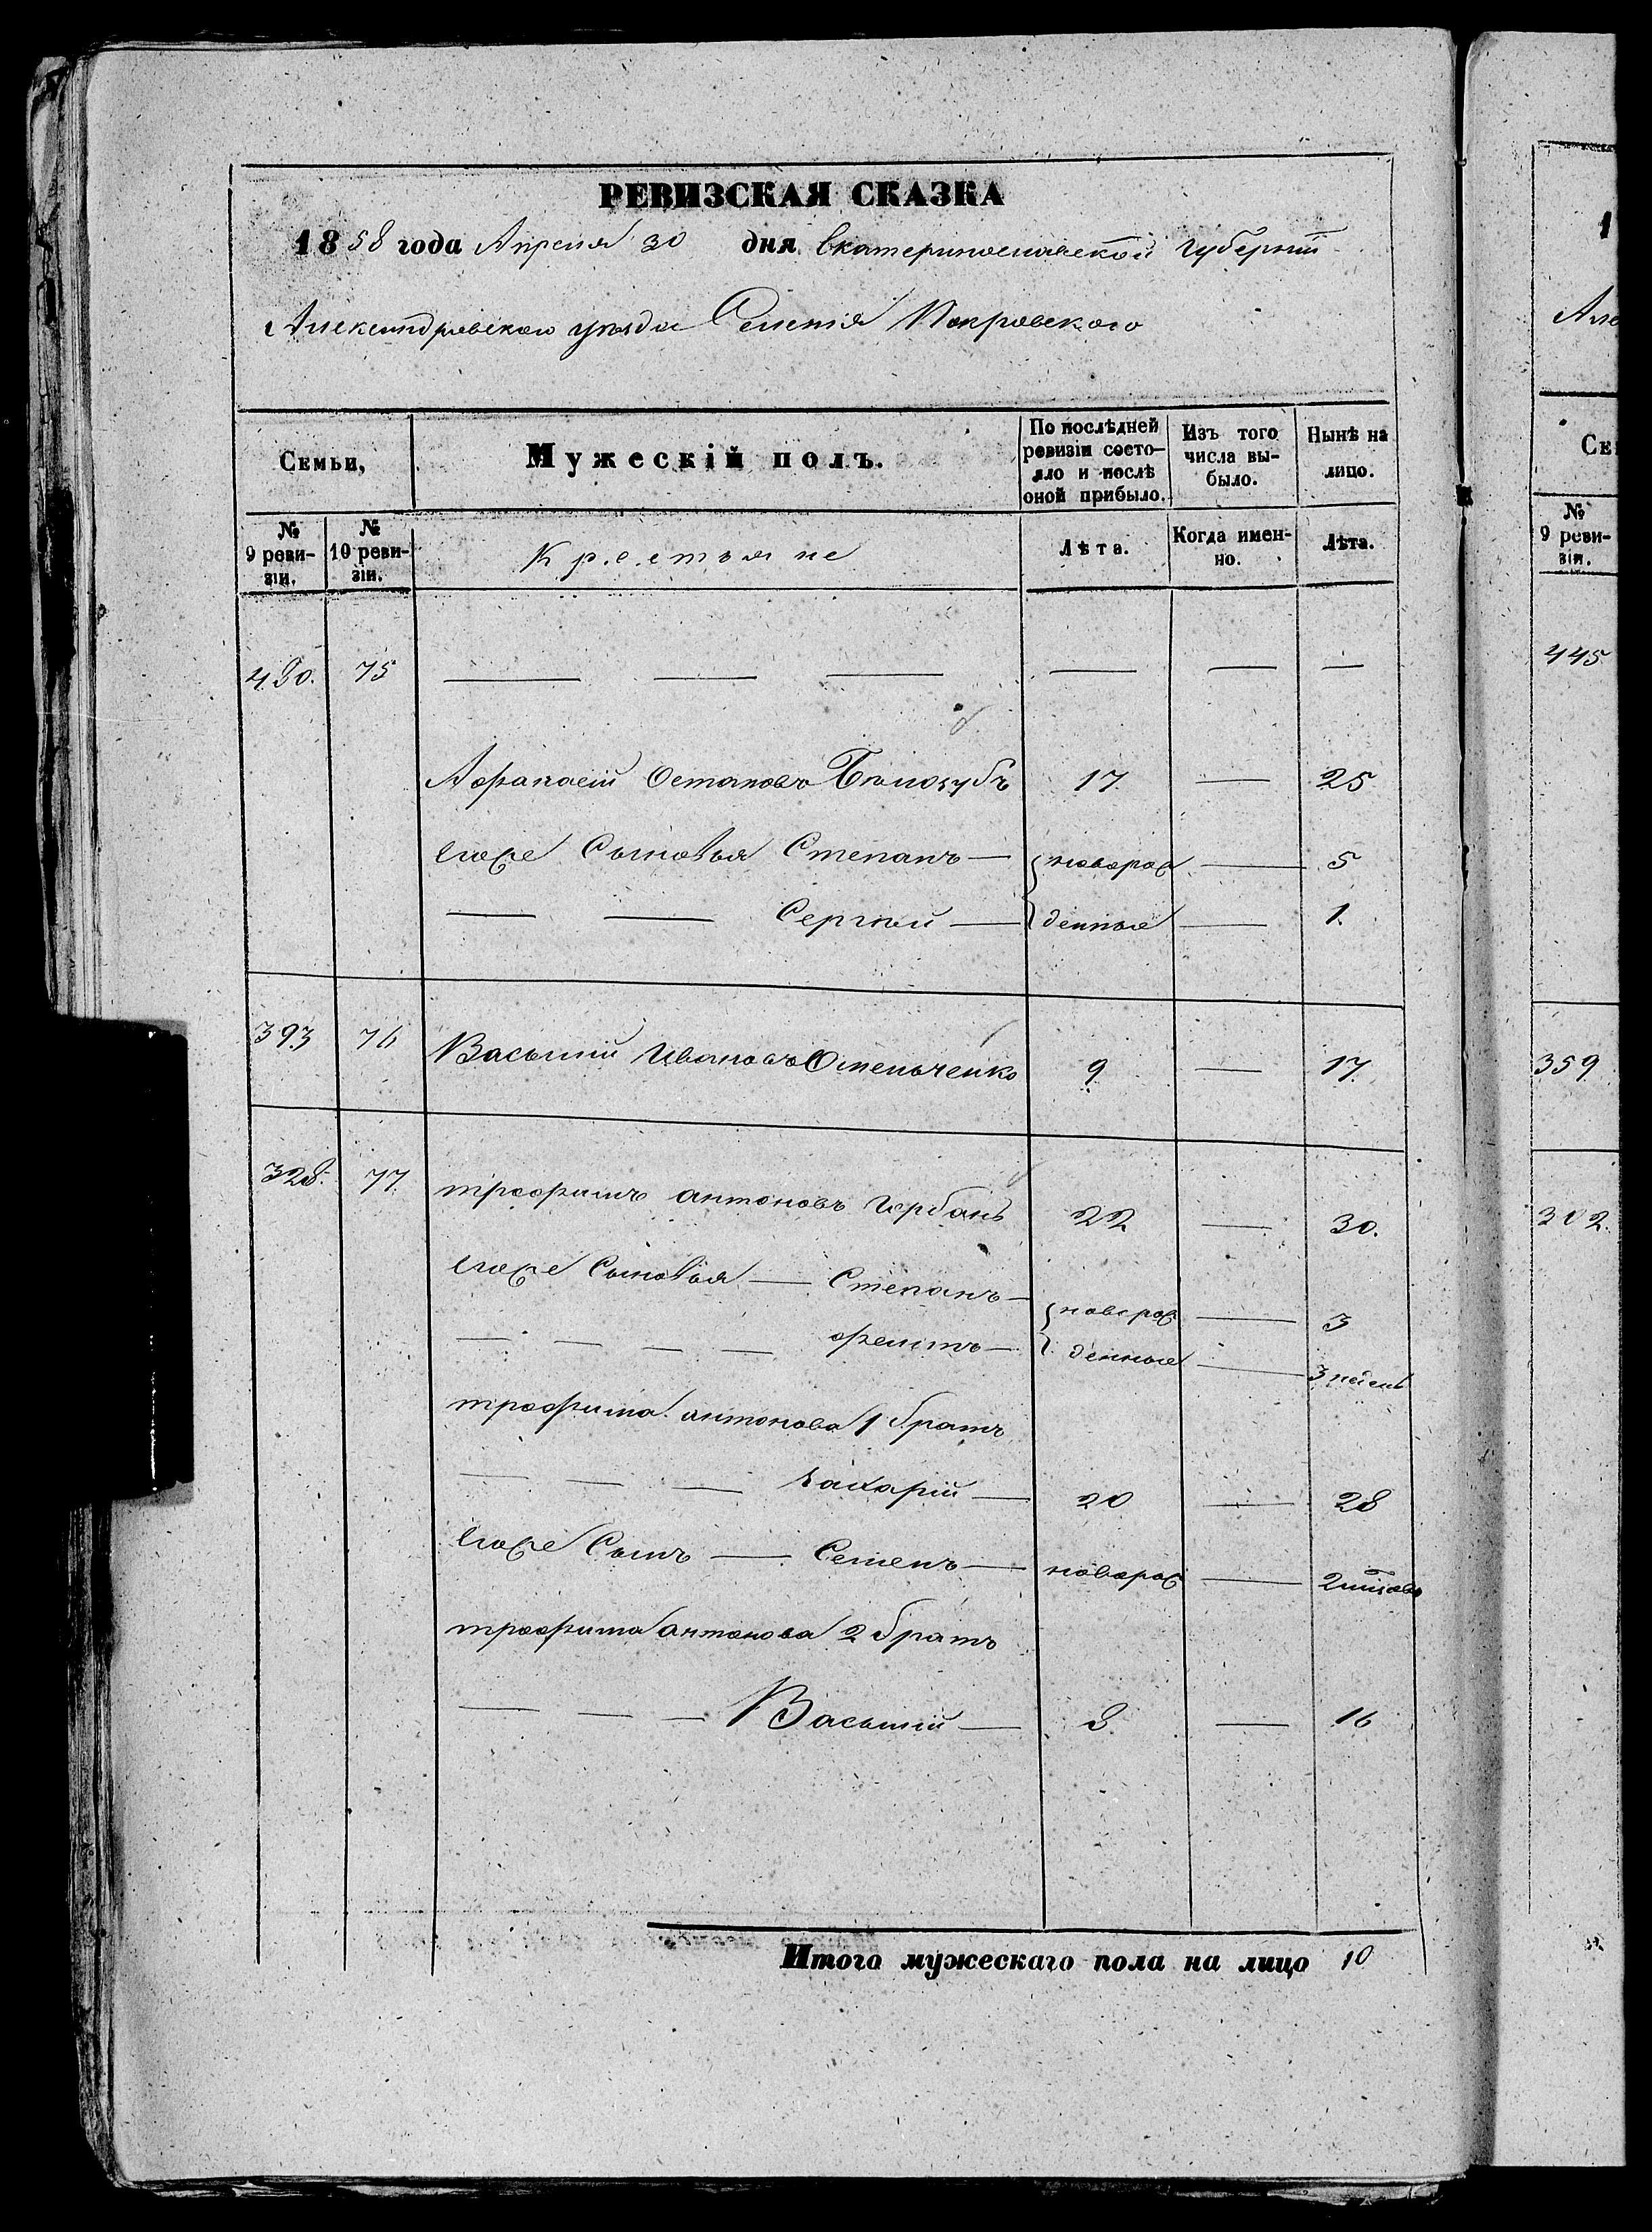 РЕВИЗСКАЯ СКАЗКА
1858 года Апреля 30 дня Екатеринославской Губернии
Александровского уѣзда Селения Покровского
Семьи,
Мужескій полъ.
По послѣдней ревизіи состояло и послѣ оной прибыло.
Изъ того числа выбыло.
Нынѣ на лицо.
№ 9 ревизіи.
№ 10 ревизіи.
Крестьяне
Лѣта.
Когда именно.
Лѣта.
480. 75 — — — — — —
Афанасій Остаповъ Бѣлозубъ 17 — 25
его же Сыновья Степанъ — новорож — 5
— — Сергѣй — денные — 1.
393 76 Василий Ивановъ Омельченко 9 — 17.
328. 77. трофимъ антоновъ Щербань 22 — 30.
его же Сыновья — Степанъ — новорож — 3
— — — — филипъ — денные — 3 недель
трофима антонова 1 братъ
— — — Захарій — 20 — 28
его же Сынъ — Семенъ — новорож —
трофима антонова 2 братъ
— — — Василий — 8 — 16
Итого мужескаго пола на лицо 10
1
Але
Сем
№ 9 ревизіи.
445
359
302.